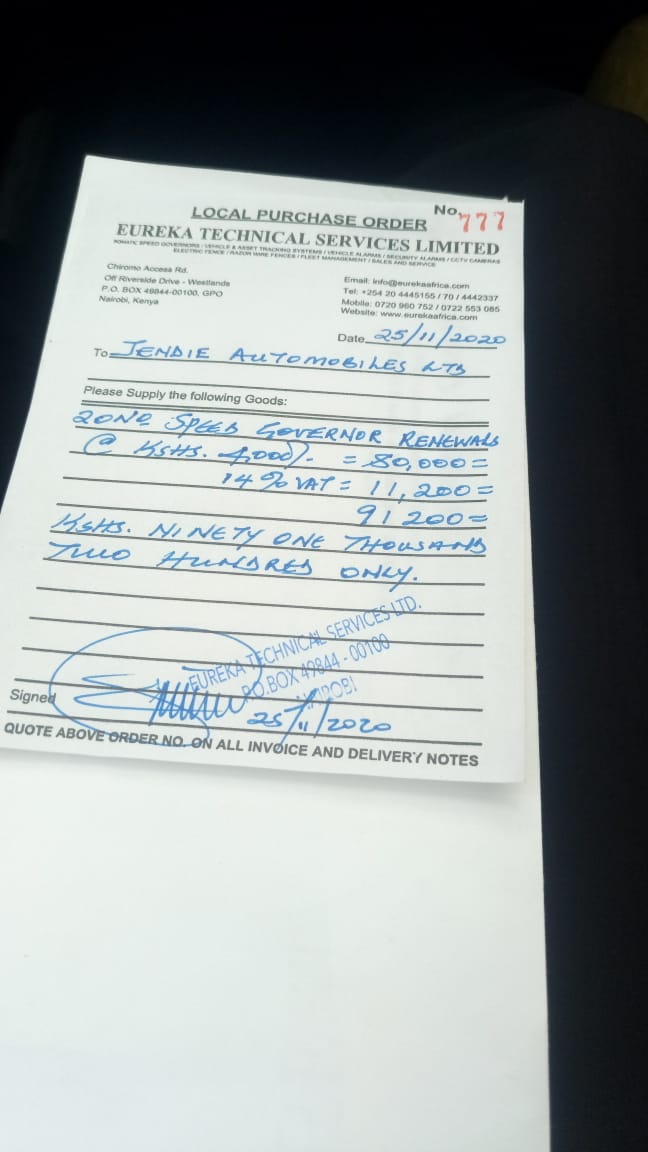 LOCAL PURCHASE ORDER No. 777
EUREKA TECHNICAL SERVICES LIMITED
ROMATIC SPEED GOVERNORS / VEHICLE & ASSET TRACKING SYSTEMS / VEHICLE ALARMS / SECURITY ALARMS / CCTV CAMERAS
ELECTRIC FENCE / RAZOR WIRE FENCES / FLEET MANAGEMENT / SALES AND SERVICE
Chiromo Access Rd.
Off Riverside Drive - Westlands
P.O. BOX 49844-00100, GPO
Nairobi, Kenya
Email: info@eurekaafrica.com
Tel: +254 20 4445155 / 70 / 4442337
Mobile: 0720 960 752 / 0722 553 085
Website: www.eurekaafrica.com
Date 25/11/2020
To JENDIE AUTOMOBILES LTD
Please Supply the following Goods:
20NO SPEED GOVERNOR RENEWALS
@ KSHS. 4,000). = 80,000=
14% VAT = 11,200=
91 200=
KSHS. NINETY ONE THOUSAND
TWO HUNDRED ONLY.
EUREKA TECHNICAL SERVICES LTD.
P.O.BOX 49844 - 00100
NAIROBI
Signed 25/11/2020
QUOTE ABOVE ORDER NO. ON ALL INVOICE AND DELIVERY NOTES